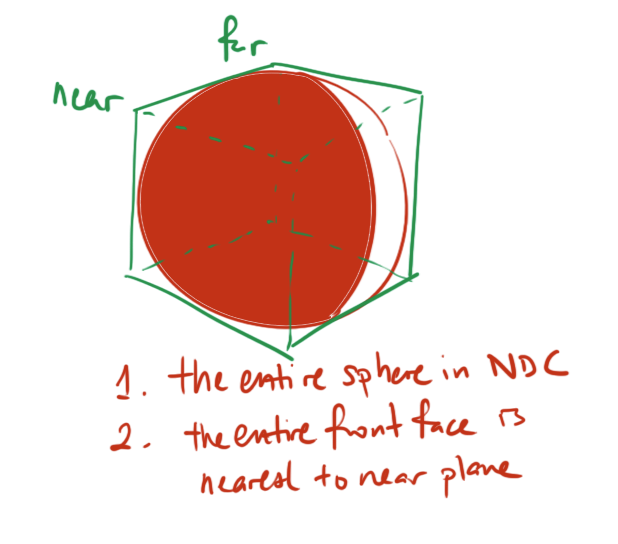 far
near
1. the entire sphere in NDC
2. the entire front face is
nearest to near plane